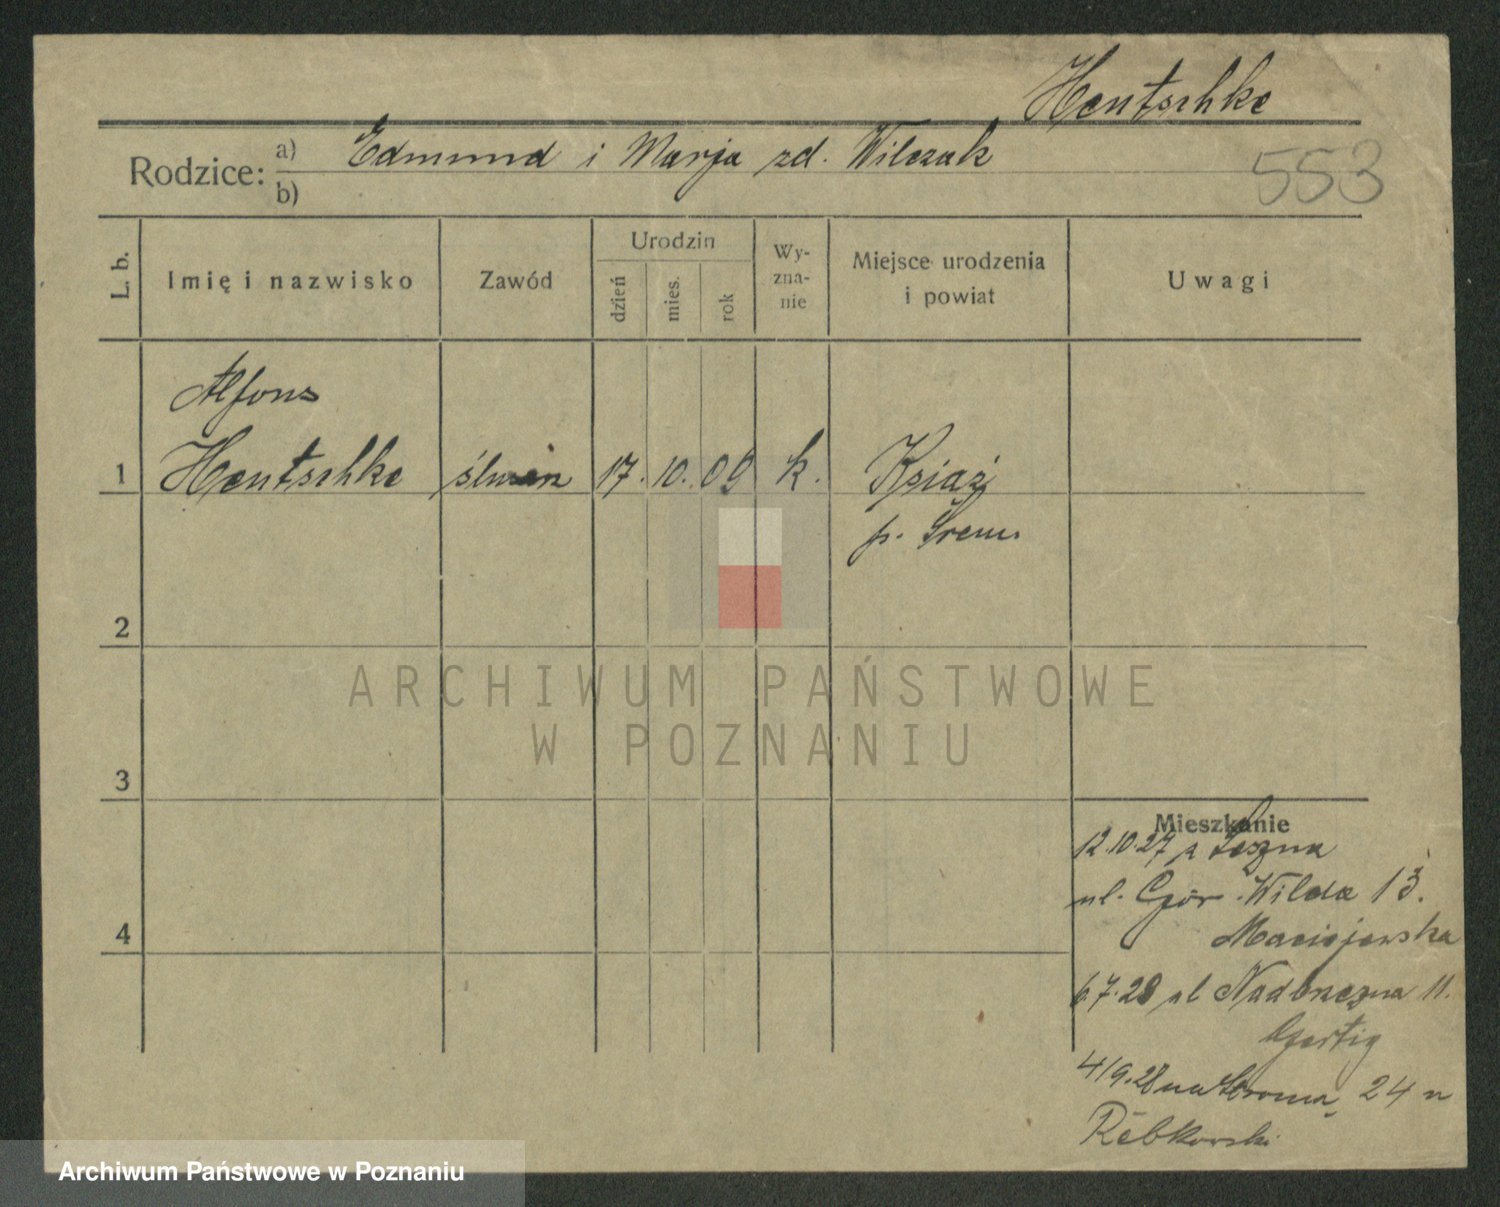 Hentschke
Rodzice: a) Edmund i Marja zd. Wilczak
b)
553
L. b.
Imię i nazwisko
Zawód
Urodzin
dzień
mies.
rok
Wy-
zna-
nie
Miejsce urodzenia
i powiat
Uwagi
Alfons
1 Hentschke ślusarz 17. 10. 09 k. Książ
p. Śrem.
2
3
4
ARCHIWUM PAŃSTWOWE
W POZNANIU
Mieszkanie
12.10.27 z Leszna
ul. Gór. Wilda 13.
Maciejewska
6.7.28 ul Nadbrzeżna 11.
Gertig
4/9.28 na 24
Rębkowski
Archiwum Państwowe w Poznaniu